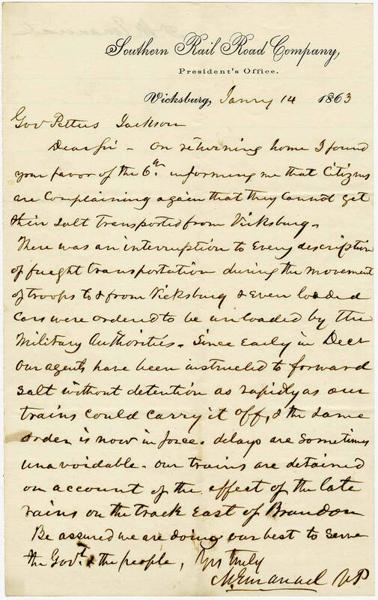 Southern Rail Road Company,
President's Office.
Vicksburg, Jany 14 1863
Gov Pettus Jackson
Dear Sir - On returning home I found
your favor of the 6th informing me that Citizens
are Complaining again that they Cannot get
their Salt transported from Vicksburg.
There was an interruption to Every description
of freight transportation during the movement
of troops to & from Vicksburg & Even loaded
Cars were ordered to be unloaded by the
Military Authorities. Since Early in Decr
our agents have been instructed to forward
Salt without detention as rapidly as our
trains could carry it off, & the same
order is now in force. delays are sometimes
unavoidable. our trains are detained
on account of the effect of the late
rains on the track East of Brandon
Be assured we are doing our best to serve
the Govt. & the people, Yrs truly
M Emanuel VP